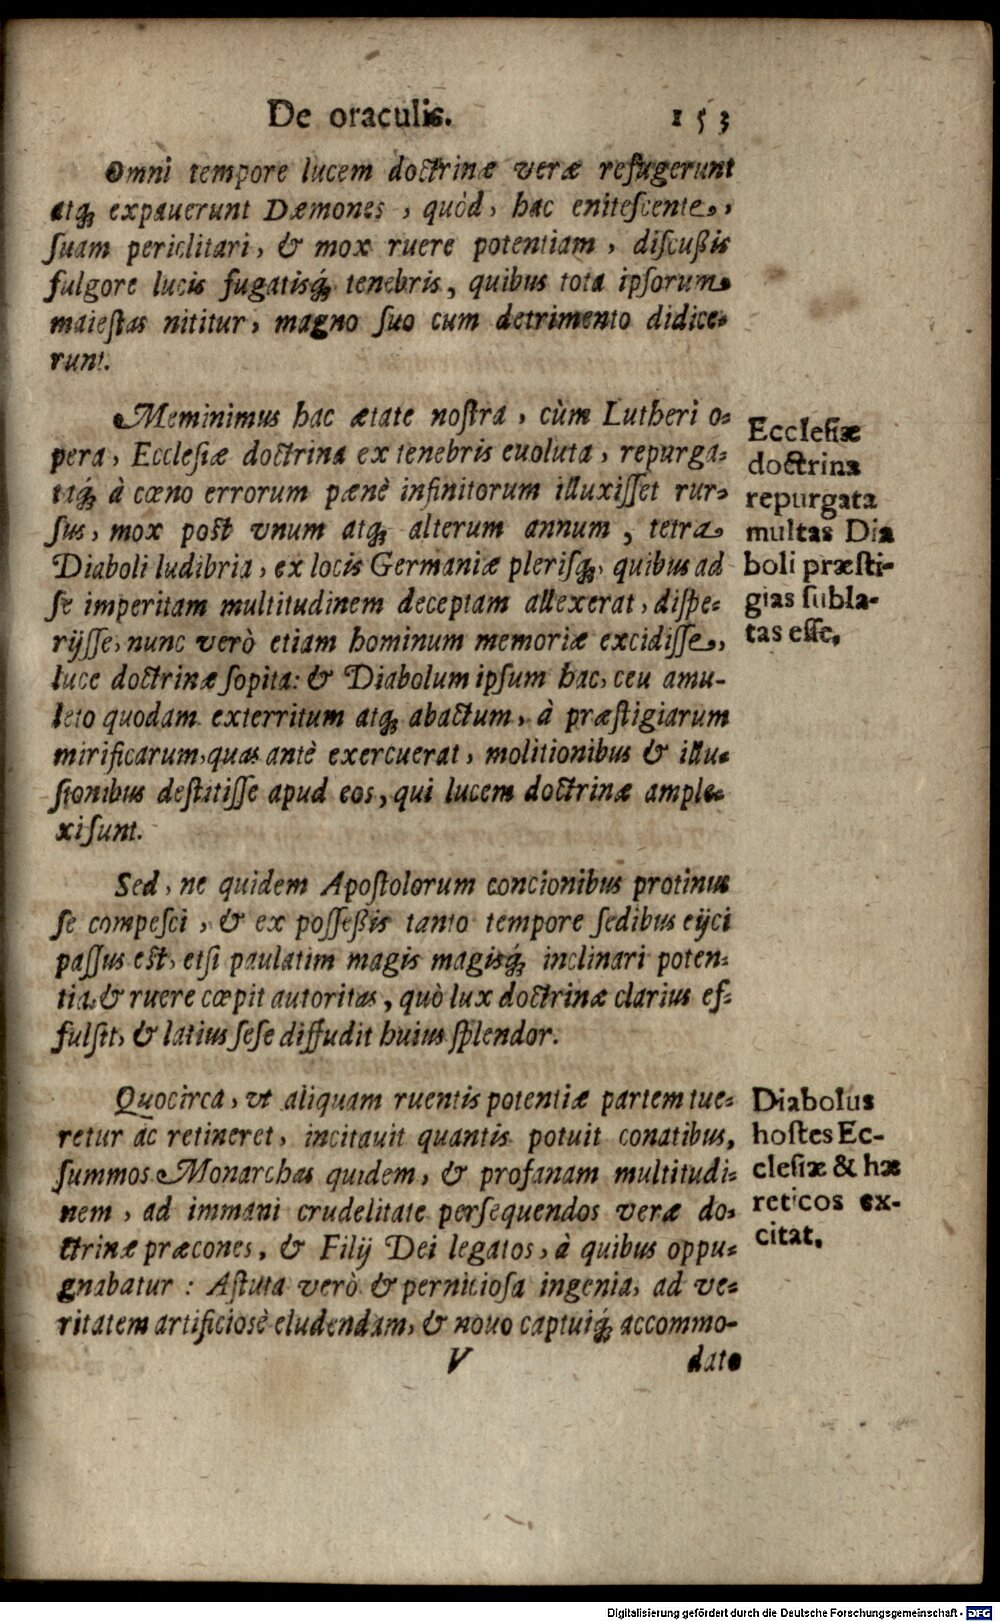 De oraculis. 153
Omni tempore lucem doctrinæ veræ refugerunt
atq́; expauerunt Dæmones, quòd, hac enitescente,
suam periclitari, & mox ruere potentiam, discußis
fulgore lucis fugatisq́; tenebris, quibus tota ipsorum
maiestas nititur, magno suo cum detrimento didice-
runt.
Meminimus hac ætate nostra, cùm Lutheri o-
pera, Ecclesiæ doctrina ex tenebris euoluta, repurga-
taq́; à cœno errorum pænè infinitorum illuxisset rur-
sus, mox post vnum atq́; alterum annum, tetra
Diaboli ludibria, ex locis Germaniæ plerisq́;, quibus ad
se imperitam multitudinem deceptam allexerat, dispe-
rijsse, nunc verò etiam hominum memoriæ excidisse,
luce doctrinæ sopita: & Diabolum ipsum hac, ceu amu-
leto quodam exterritum atq́; abactum, à præstigiarum
mirificarum, quas antè exercuerat, molitionibus & illu-
sionibus destitisse apud eos, qui lucem doctrinæ ample-
xi sunt.
Ecclesiæ
doctrina
repurgata
multas Dia
boli præsti-
gias subla-
tas esse.
Sed, ne quidem Apostolorum concionibus protinus
se compesci, & ex possessis tanto tempore sedibus eijci
passus est, etsi paulatim magis magisq́; inclinari poten-
tia, & ruere cœpit autoritas, quò lux doctrinæ clarius ef-
fulsit, & latius sese diffudit huius splendor.
Quocirca, vt aliquam ruentis potentiæ partem tue-
retur ac retineret, incitauit quantis potuit conatibus,
summos Monarchas quidem, & profanam multitudi-
nem, ad immani crudelitate persequendos veræ do-
ctrinæ præcones, & Filij Dei legatos, à quibus oppu-
gnabatur: Astuta verò & perniciosa ingenia, ad ve-
ritatem artificiosè eludendam, & nouo captuiq́; accommo-
Diabolus
hostes Ec-
clesiæ & hæ
reticos ex-
citat.
V dato
Digitalisierung gefördert durch die Deutsche Forschungsgemeinschaft - DFG